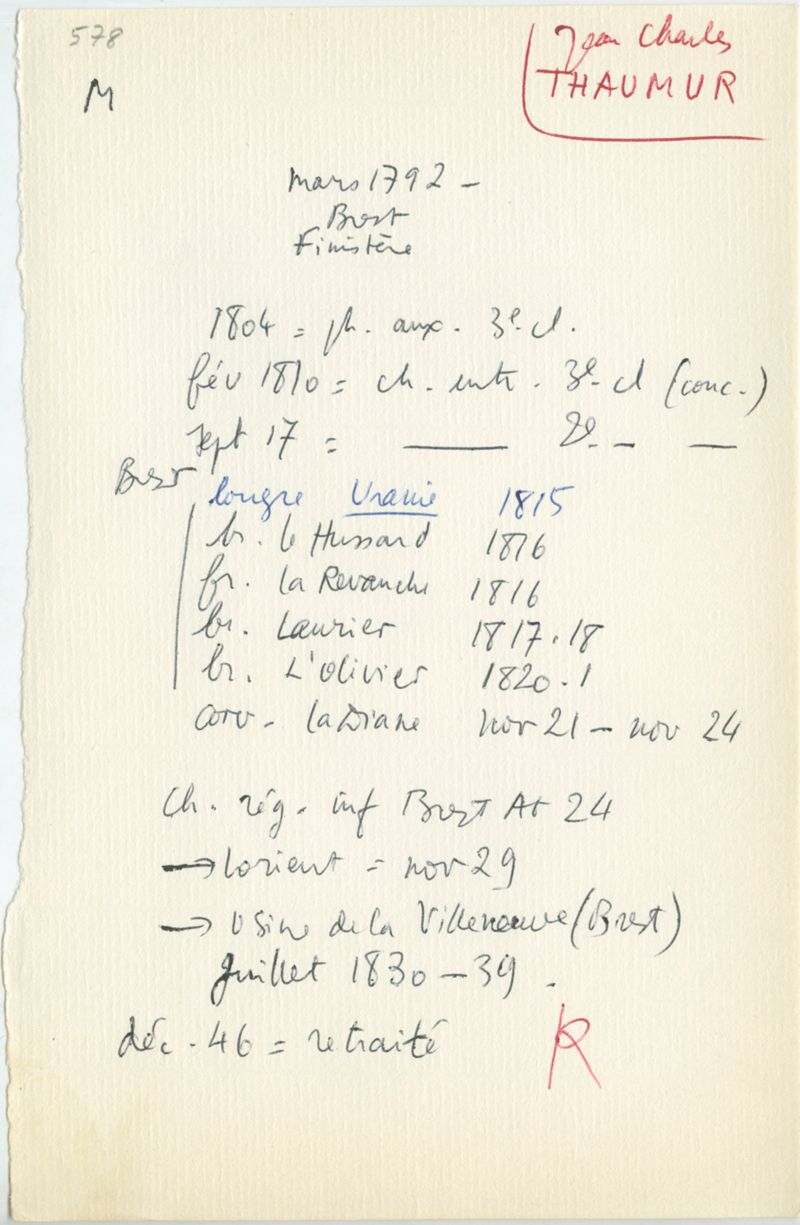 578
Jean Charles
THAUMUR
M
mars 1792 -
Brest
Finistère
1804 = ph. aux. 3e cl.
fév 1810 = ch. entr. 3e cl (conc.)
sept 17 = —— 2e - —
Brest
lougre Uranie 1815
br. le Hussard 1816
fr. la Revanche 1816
br. Laurier 1817.18
br. L'olivier 1820.1
corv. la Diane nov 21 - nov 24
Ch. rég. inf Brest At 24
→ Lorient = nov 29
→ Usine de la Villeneuve (Brest)
Juillet 1830 - 39.
déc. 46 = retraité
R